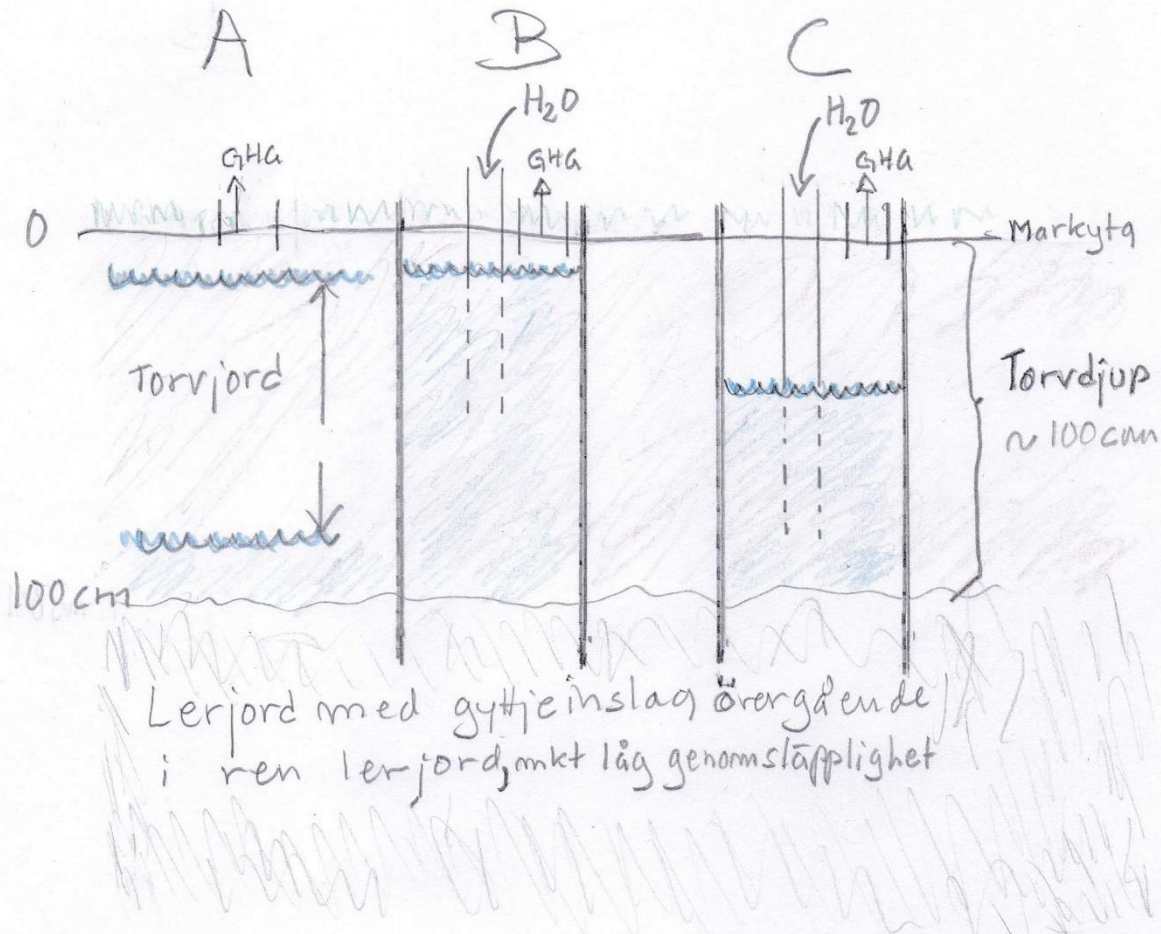 A B C
H₂O H₂O
GHG GHG GHG
0
Markyta
Torvjord
Torvdjup
~ 100cm
100cm
Lerjord med gyttjeinslag övergående
i ren lerjord, mkt låg genomsläpplighet